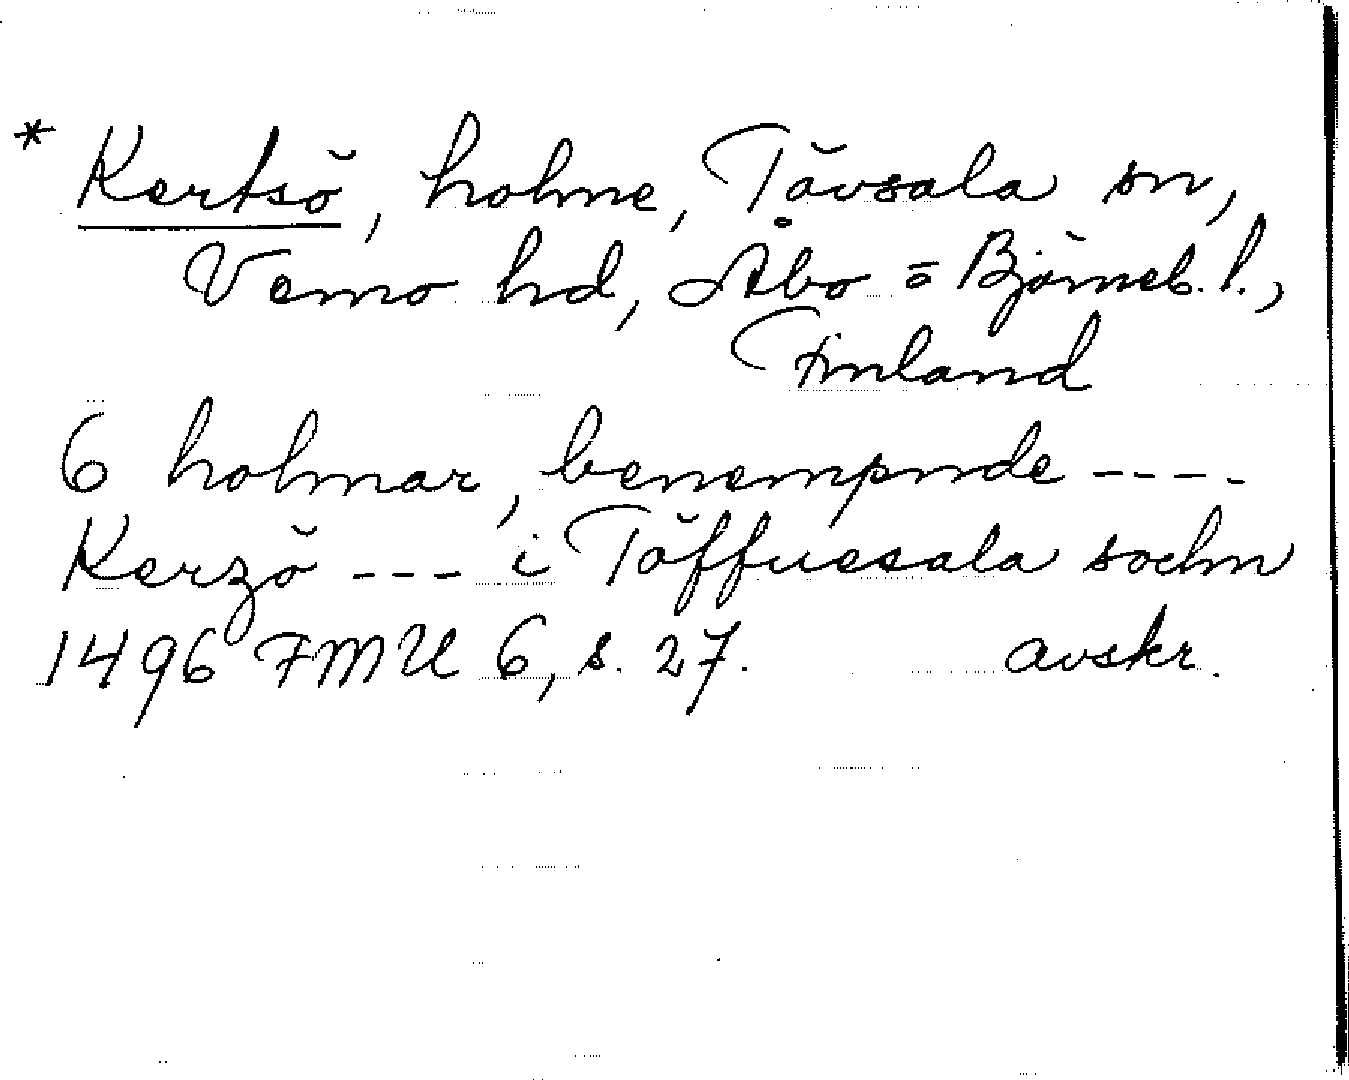 * Kertsö, holme, Tövsala sn,
Vemo hd, Åbo = Björneb. l.,
Finland
6 holmar, benempnde ----
Kerzö --- i Töffuesala sochn
1496 FMU 6, s. 27. avskr.